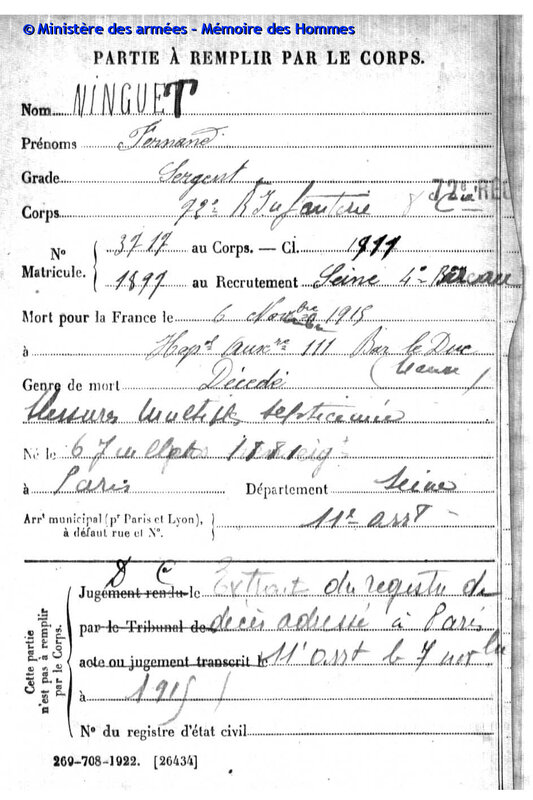 © Ministère des armées - Mémoire des Hommes
PARTIE À REMPLIR PAR LE CORPS.
Nom NINGUET
Prénoms Fernand
Grade Sergent
Corps 92e R Infanterie
72e REG
No Matricule. 3717 au Corps. — Cl. 1911
1897 au Recrutement Seine 4e Bureau
Mort pour la France le 6 Novembre 1915
à Hopal Auxre 111 Bar le Duc
(Meuse)
Genre de mort Décédé
blessures multiples septicémie
Né le 6 Juillet 1881
à Paris Département Seine
Arrt municipal (pr Paris et Lyon), à défaut rue et No. 11e arrt
Cette partie n'est pas à remplir par le Corps.
D C
Jugement rendu le Extrait du registre de
par le Tribunal de décès adressé à Paris
acte ou jugement transcrit le 11e arrt le 7 novbre
à 1915
No du registre d'état civil
269-708-1922. [26434]